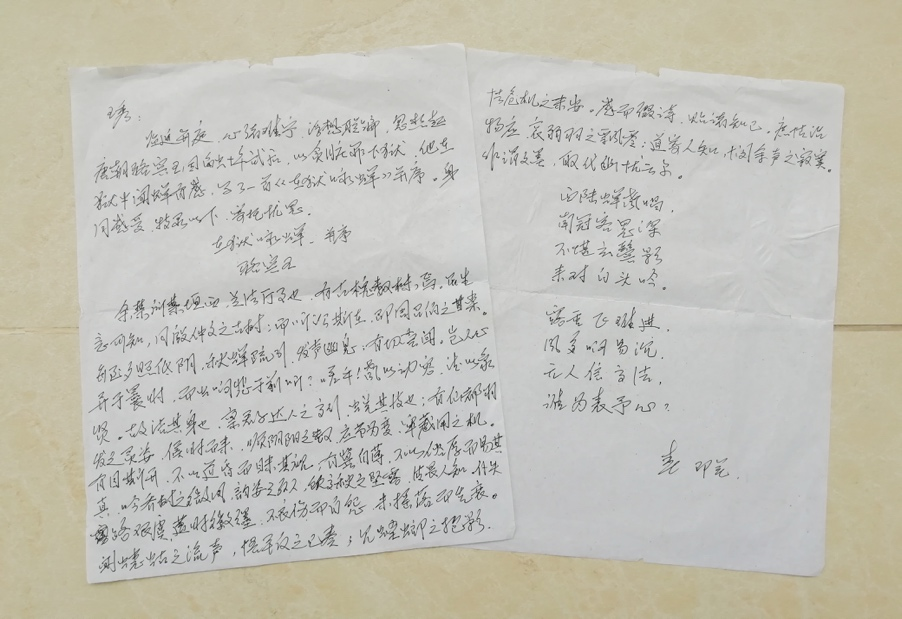 心绪难宁，浮想联翩，忽想起
唐朝骆宾王因向武后，以负罪下狱，他在
狱中闻蝉有感，写了一首《在狱咏蝉》并序。身
同感受，特录如下，寄托忧思。
在狱咏蝉 并序
骆宾王
余禁所禁垣西，是法厅事也，有古槐数株焉。虽生
意可知，同殷仲文之古树；而听讼斯在，即周召伯之甘棠。
每至夕照低阴，秋蝉疏引，发声幽息，有切尝闻。岂人心
异于曩时，将虫响悲于前听？嗟乎！声以动容，德以象
贤。故洁其身也，禀君子达人之高行；蜕其皮也，有仙都羽
化之灵姿。候时而来，顺阴阳之数；应节为变，审藏用之机。
有目斯开，不以道昏而昧其视；有翼自薄，不以俗厚而易其
真。吟乔树之微风，韵姿天纵；饮高秋之坠露，清畏人知。仆失
路艰虞，遭时徽纆，不哀伤而自怨，未摇落而先衰。
闻蟪蛄之流声，悟平反之已奏；见螳螂之抱影，
怯危机之未安。感而缀诗，贻诸知己。庶情沿
物应，哀弱羽之飘零；道寄人知，悯余声之寂寞。
非谓文墨，取代幽忧云尔。
西陆蝉声唱，
南冠客思深。
不堪玄鬓影，
来对白头吟。
露重飞难进，
风多响易沉。
无人信高洁，
谁为表予心？